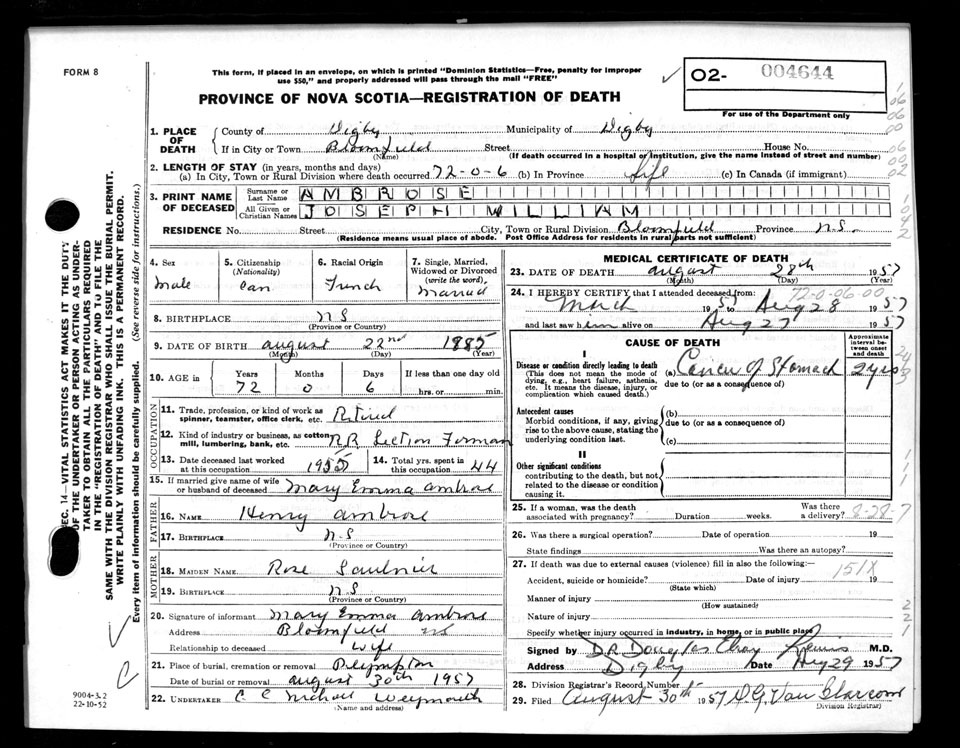 FORM 8
This form, if placed in an envelope, on which is printed "Dominion Statistics—Free, penalty for improper
use $50," and properly addressed will pass through the mail "FREE"
02- 004644
For use of the Department only
PROVINCE OF NOVA SCOTIA—REGISTRATION OF DEATH
1. PLACE OF DEATH
County of Digby Municipality of Digby
If in City or Town Bloomfield Street House No.
(Name) (If death occurred in a hospital or institution, give the name instead of street and number)
2. LENGTH OF STAY (in years, months and days)
(a) In City, Town or Rural Division where death occurred 72-0-6 (b) In Province Life (c) In Canada (if immigrant)
3. PRINT NAME OF DECEASED
Surname or Last Name AMBROSE
All Given or Christian Names JOSEPH WILLIAM
RESIDENCE No. Street City, Town or Rural Division Bloomfield Province N.S.
(Residence means usual place of abode. Post Office Address for residents in rural parts not sufficient)
4. Sex
male
5. Citizenship
(Nationality)
Can
6. Racial Origin
French
7. Single, Married, Widowed or Divorced
(write the word)
Married
8. BIRTHPLACE N S
(Province or Country)
9. DATE OF BIRTH August 22nd 1885
(Month) (Day) (Year)
10. AGE in
Years Months Days If less than one day old
72 0 6 hrs. or min.
OCCUPATION
11. Trade, profession, or kind of work as
spinner, teamster, office clerk, etc. Retired
12. Kind of industry or business, as cotton
mill, lumbering, bank, etc. RR Section Forman
13. Date deceased last worked
at this occupation
14. Total yrs. spent in
this occupation 44
15. If married give name of wife
or husband of deceased Mary Emma Ambrose
FATHER
16. NAME Henry Ambrose
17. BIRTHPLACE N.S
(Province or Country)
MOTHER
18. MAIDEN NAME Rose Saulnier
19. BIRTHPLACE N S
(Province or Country)
20. Signature of informant Mary Emma Ambrose
Address Bloomfield NS
Relationship to deceased Wife
21. Place of burial, cremation or removal Plympton
Date of burial or removal August 30th 1957
22. UNDERTAKER C C Weymouth
(Name and address)
MEDICAL CERTIFICATE OF DEATH
23. DATE OF DEATH August 28th 1957
(Month) (Day) (Year)
72-0-06-00
24. I HEREBY CERTIFY that I attended deceased from:
March 1957 to Aug 28 1957
and last saw him alive on Aug 27 1957
CAUSE OF DEATH
Approximate interval between onset and death
I
Disease or condition directly leading to death
(This does not mean the mode of dying, e.g., heart failure, asthenia, etc. It means the disease, injury, or complication which caused death.)
(a) Cancer of Stomach 2 yrs
due to (or as a consequence of)
Antecedent causes
Morbid conditions, if any, giving rise to the above cause, stating the underlying condition last.
(b)
due to (or as a consequence of)
(c)
II
Other significant conditions
contributing to the death, but not related to the disease or condition causing it.
25. If a woman, was the death
associated with pregnancy? Duration weeks. Was there a delivery?
8-28-7
26. Was there a surgical operation? Date of operation 19
State findings Was there an autopsy?
27. If death was due to external causes (violence) fill in also the following:—
151X
Accident, suicide or homicide? Date of injury 19
(State which)
Manner of injury
(How sustained)
Nature of injury
Specify whether injury occurred in industry, in home, or in public place
Signed by M.D.
Address Digby Date Aug 29 1957
28. Division Registrar's Record Number
29. Filed August 30th 1957
Division Registrar)
SEC. 14—VITAL STATISTICS ACT MAKES IT THE DUTY
OF THE UNDERTAKER OR PERSON ACTING AS UNDER-
TAKER TO OBTAIN ALL THE PARTICULARS REQUIRED
IN THE "REGISTRATION OF DEATH" AND TO FILE THE
SAME WITH THE DIVISION REGISTRAR WHO SHALL ISSUE THE BURIAL PERMIT.
WRITE PLAINLY WITH UNFADING INK. THIS IS A PERMANENT RECORD.
Every item of information should be carefully supplied. (See reverse side for instructions.)
9004-3.2
22-10-52